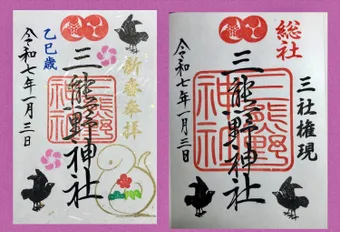 新春奉拝
三熊野神社
乙巳歳
令和七年一月三日
総社
三社権現
三熊野神社
三熊野
神社
令和七年一月三日